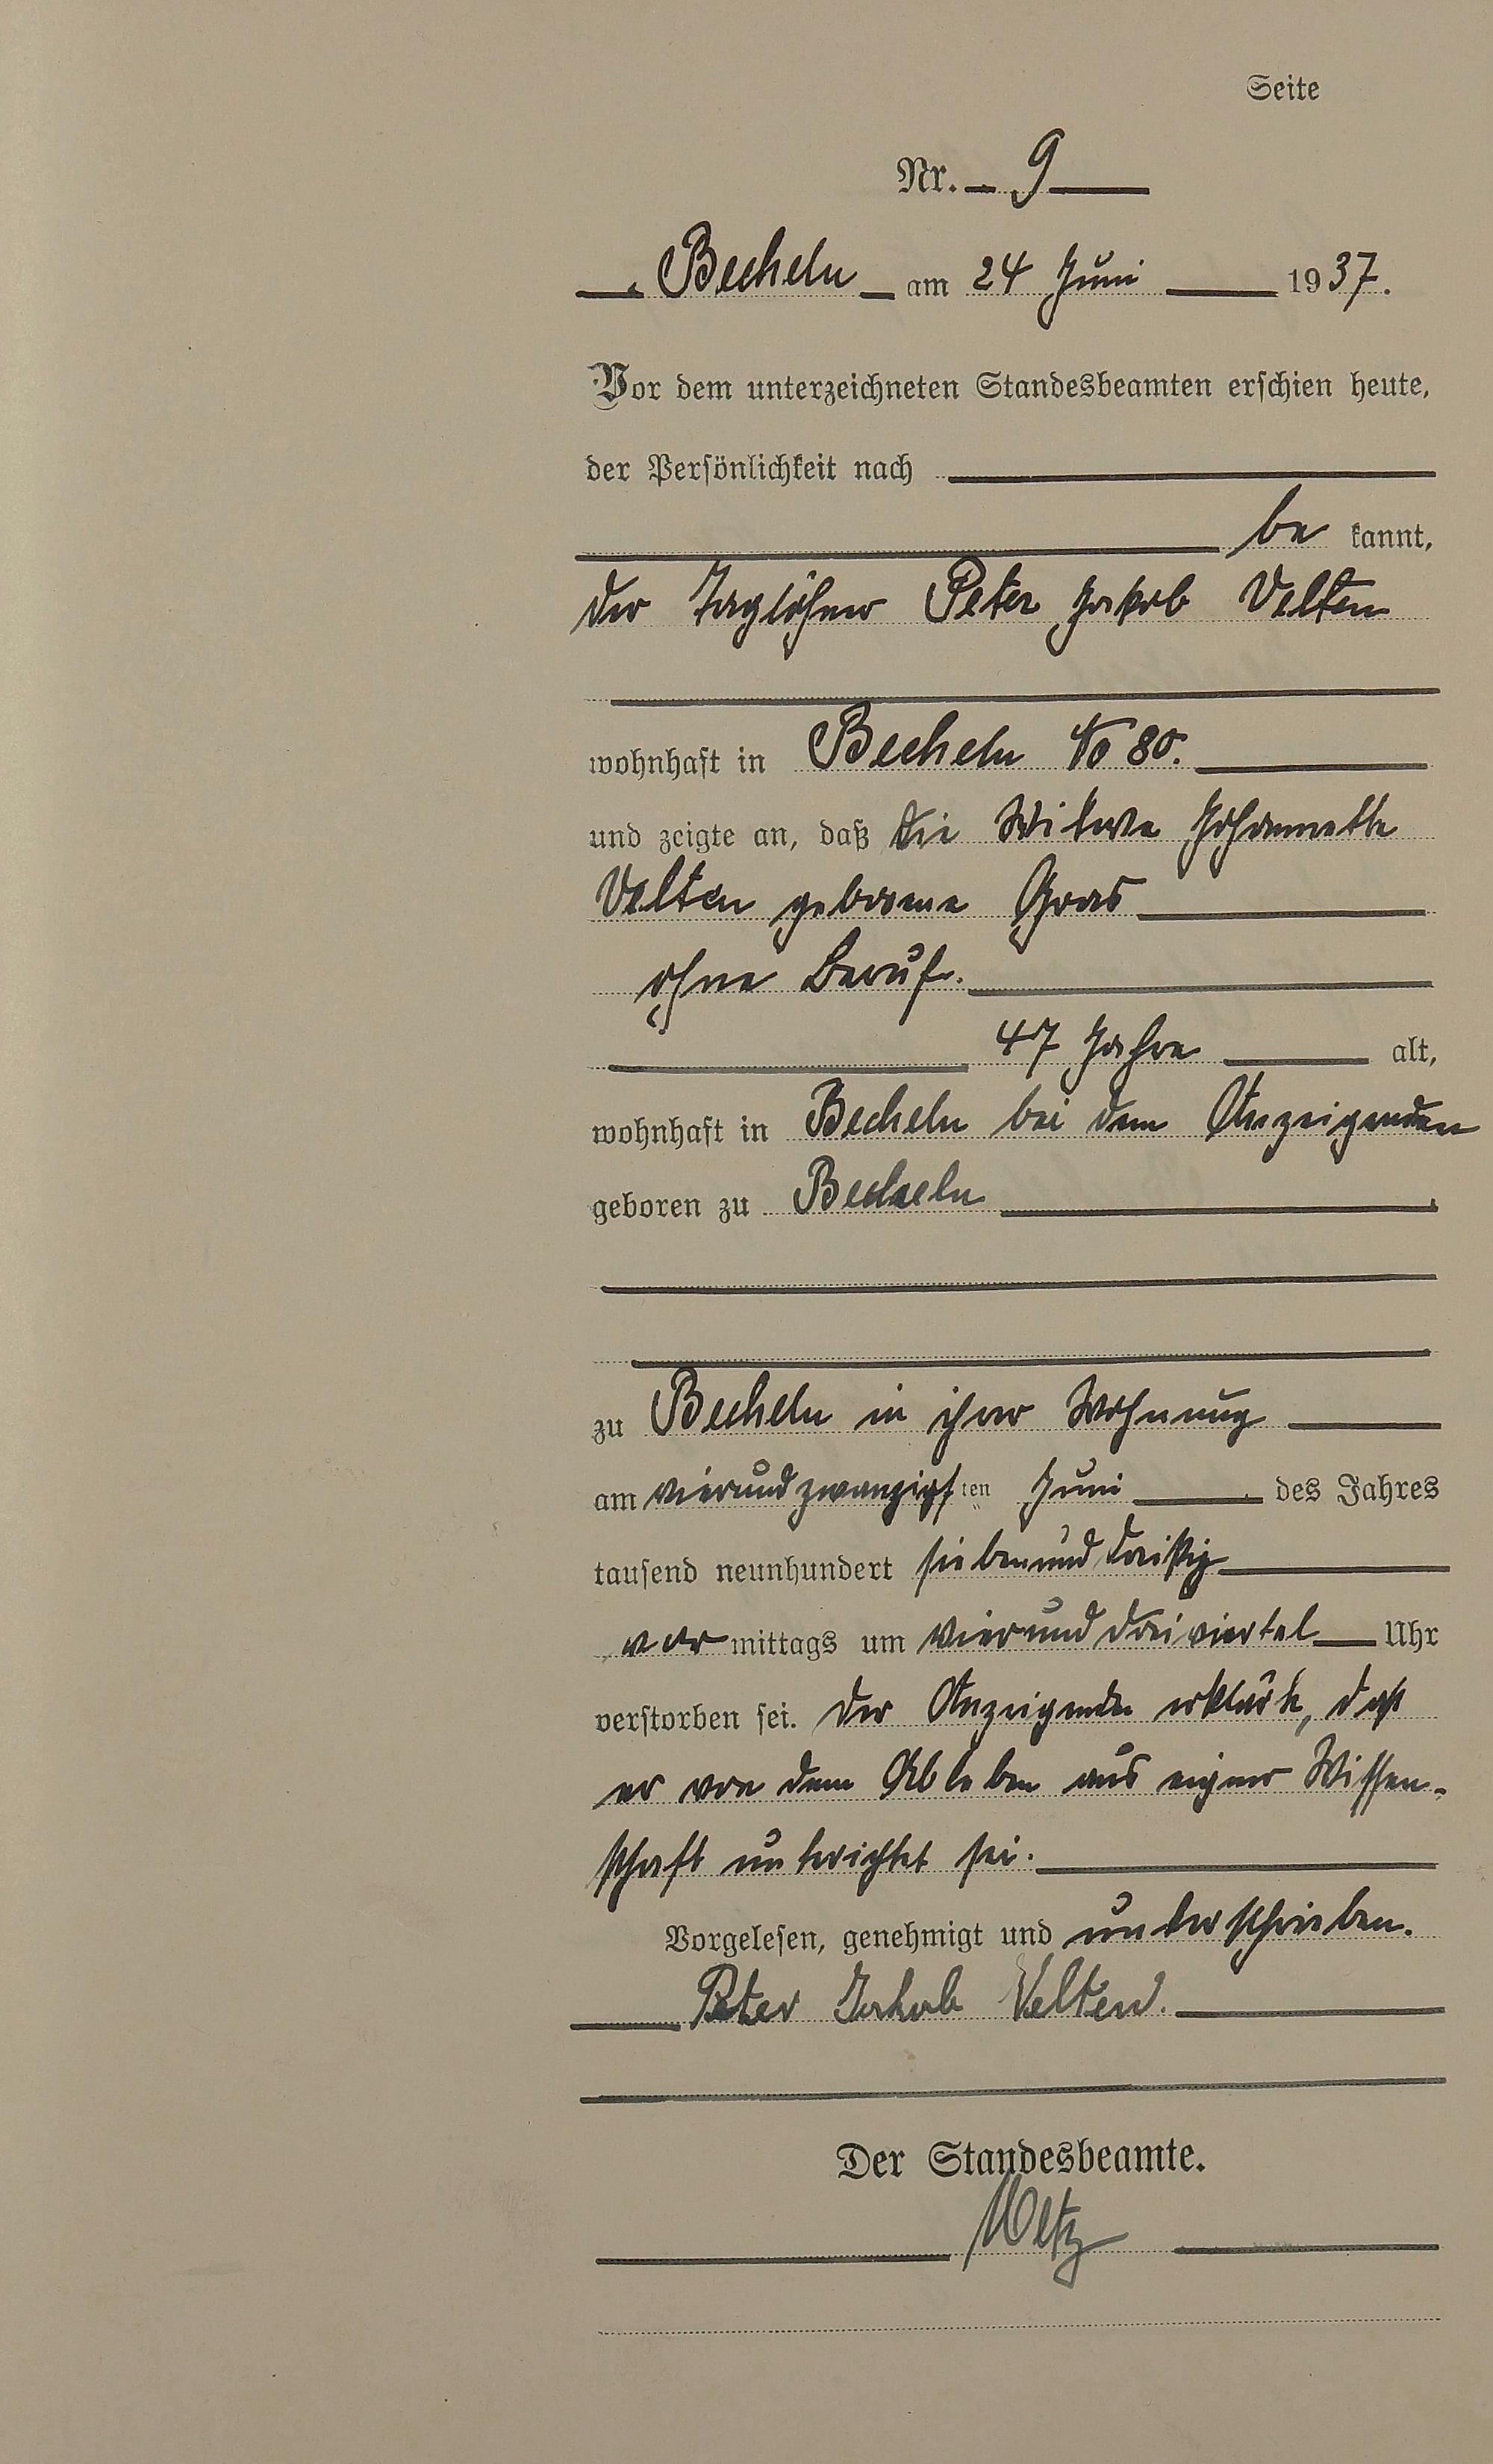 Seite
Nr. 9
Becheln am 24 Juni 1937.
Vor dem unterzeichneten Standesbeamten erschien heute,
der Persönlichkeit nach
be kannt,
der Taglöhner Peter Jakob Velten
wohnhaft in Becheln No 80.
und zeigte an, daß die Witwe Johannette
Velten geborene Gras
ohne Beruf.
47 Jahre alt,
wohnhaft in Becheln bei dem Anzeigenden
geboren zu Becheln
zu Becheln in ihrer Wohnung
am vierundzwanzigsten Juni des Jahres
tausend neunhundert siebenunddreißig
vormittags um vierunddreiviertel Uhr
verstorben sei. Der Anzeigende erklärte, daß
er von dem Ableben aus eigner Wissen-
schaft unterrichtet sei.
Vorgelesen, genehmigt und unterschrieben.
Peter Jakob Velten.
Der Standesbeamte.